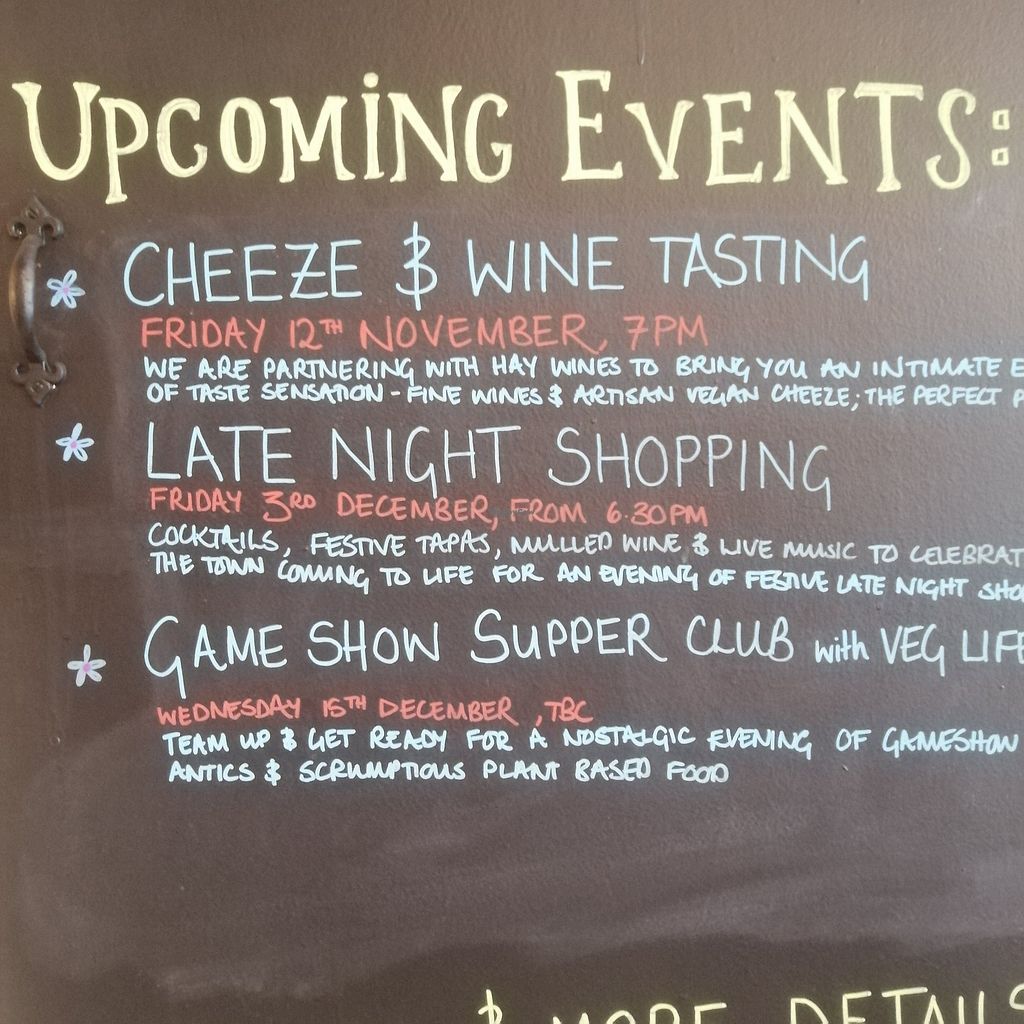 UPCOMING EVENTS:
CHEEZE & WINE TASTING
FRIDAY 12TH NOVEMBER, 7PM
WE ARE PARTNERING WITH HAY WINES TO BRING YOU AN INTIMATE E
OF TASTE SENSATION - FINE WINES & ARTISAN VEGAN CHEEZE; THE PERFECT P
LATE NIGHT SHOPPING
FRIDAY 3RD DECEMBER, FROM 6.30PM
COCKTAILS, FESTIVE TAPAS, MULLED WINE & LIVE MUSIC TO CELEBRAT
THE TOWN COMING TO LIFE FOR AN EVENING OF FESTIVE LATE NIGHT SHO
GAME SHOW SUPPER CLUB with VEG LIFE
WEDNESDAY 15TH DECEMBER, TBC
TEAM UP & GET READY FOR A NOSTALGIC EVENING OF GAMESHOW
ANTICS & SCRUMPTIOUS PLANT BASED FOOD
& MORE DETAILS